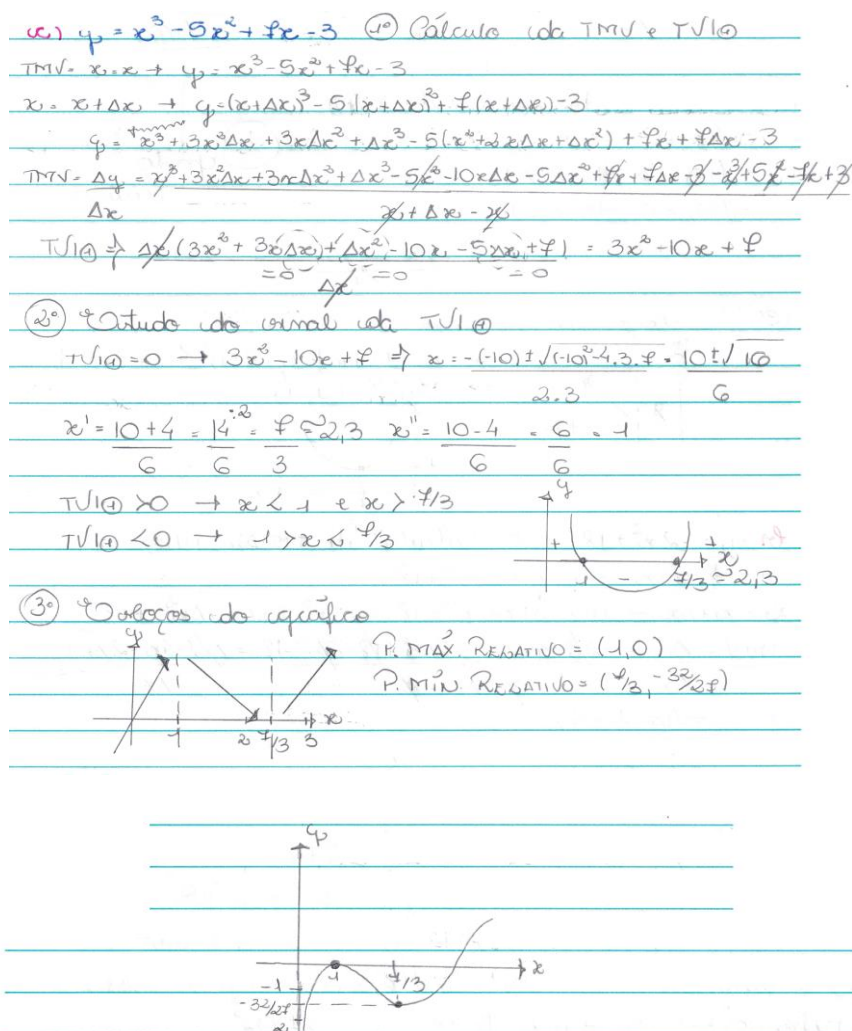 c) y = x³ - 5x² + 7x - 3 1º Cálculo da TMV e TVI
TMV = x = x → y = x³ - 5x² + 7x - 3
x = x + Δx → y = (x + Δx)³ - 5(x + Δx)² + 7(x + Δx) - 3
y = x³ + 3x²Δx + 3xΔx² + Δx³ - 5(x² + 2xΔx + Δx²) + 7x + 7Δx - 3
TMV = Δy/Δx = x³ + 3x²Δx + 3xΔx² + Δx³ - 5x² - 10xΔx - 5Δx² + 7x + 7Δx - 3 - x³ + 5x² - 7x + 3
x + Δx - x
TVI ⇒ Δx(3x² + 3xΔx + Δx² - 10x - 5Δx + 7) = 3x² - 10x + 7
=0 =0 =0
Δx
2º Estudo do sinal da TVI
TVI = 0 → 3x² - 10x + 7 ⇒ x = -(-10) ± √(-10)² - 4.3.7 = 10 ± √16
2.3 6
x' = 10+4/6 = 14/6 :2 = 7/3 ≅ 2,3 x'' = 10-4/6 = 6/6 = 1
TVI > 0 → x < 1 e x > 7/3
TVI < 0 → 1 > x < 7/3
y
+ + x
1 - 7/3 ≅ 2,3
3º Esboços do gráfico
y
P. MÁX. RELATIVO = (1,0)
P. MÍN RELATIVO = (7/3, -32/27)
1 2 7/3 3 x
y
1 7/3 x
-1
-32/27
2